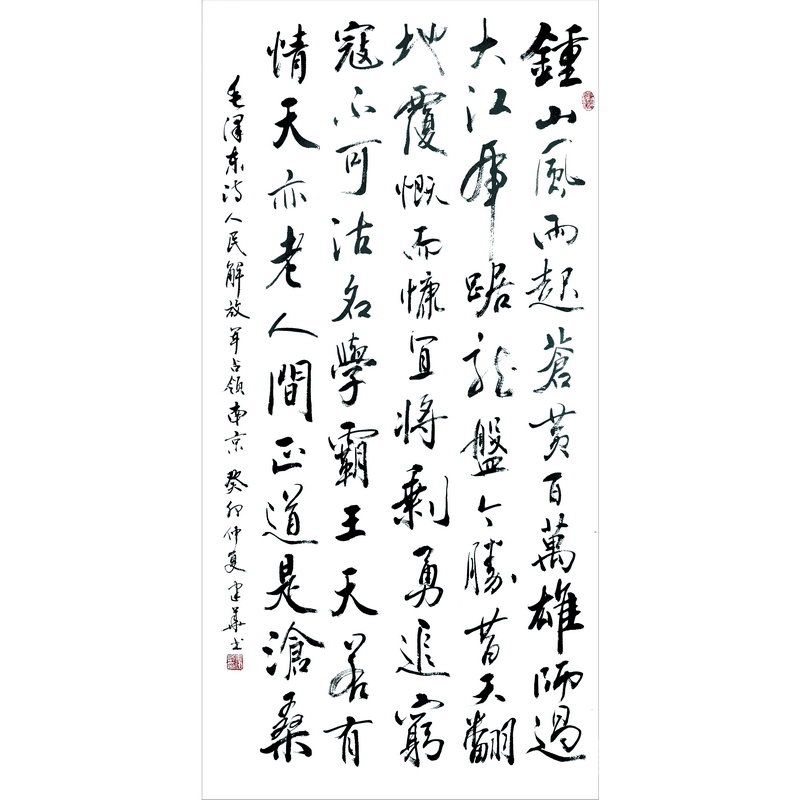 鍾山風雨起蒼黃百萬雄師過
大江虎踞龍盤今勝昔天翻
地覆慨而慷宜將剩勇追窮
寇不可沽名學霸王天若有
情天亦老人間正道是滄桑
毛澤东诗人民解放军占领南京 癸卯仲夏建華书